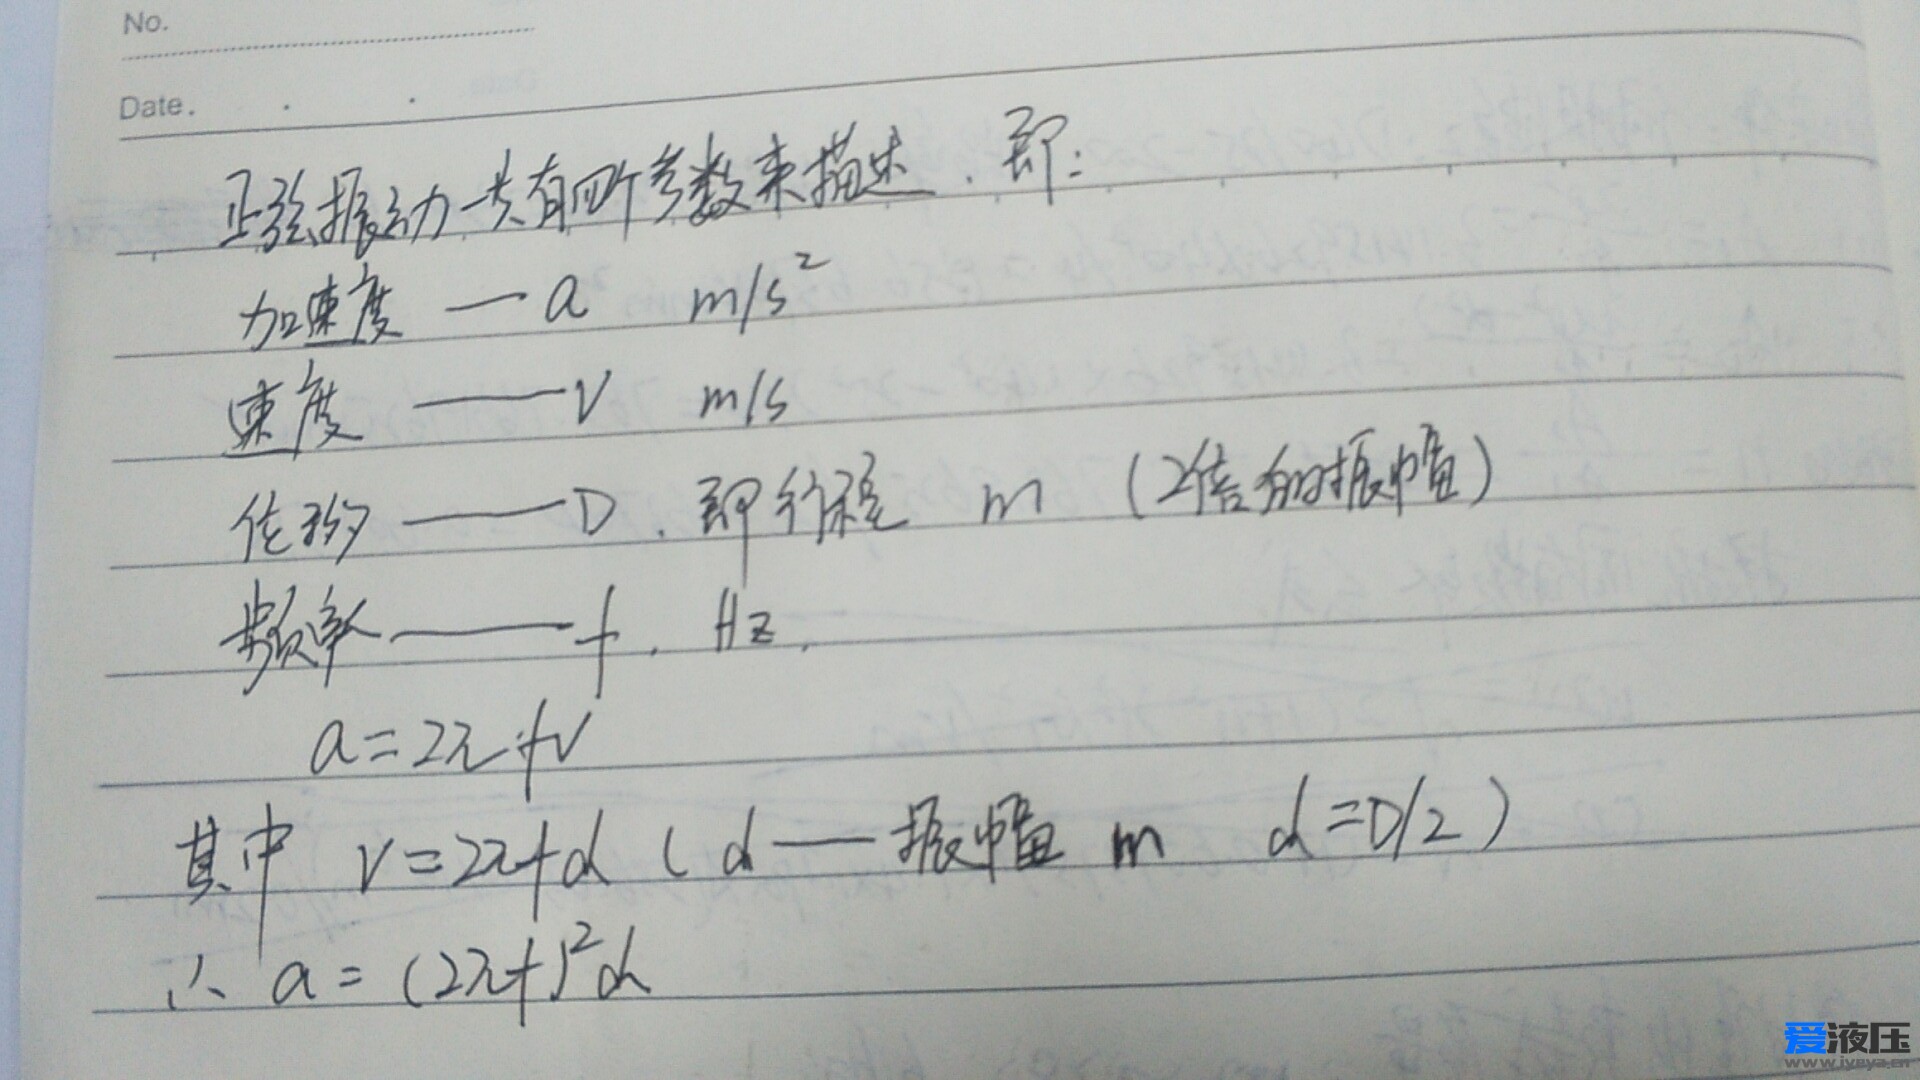 No.
Date.
正弦振动一共有四个参数来描述.即:
加速度 — a m/s²
速度 —— V m/s
位移 —— D.即行程 m (2倍的振幅)
频率 —— f. Hz.
a=2πfV
其中 V=2πfd (d — 振幅 m d=D/2)
∴ a=(2πf)²d
爱液压
www.iyeya.cn